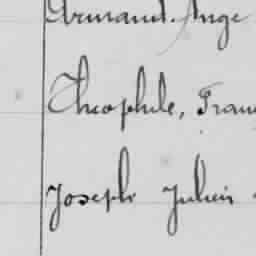 Armand. Ange
Théophile, Fran
Joseph Julien